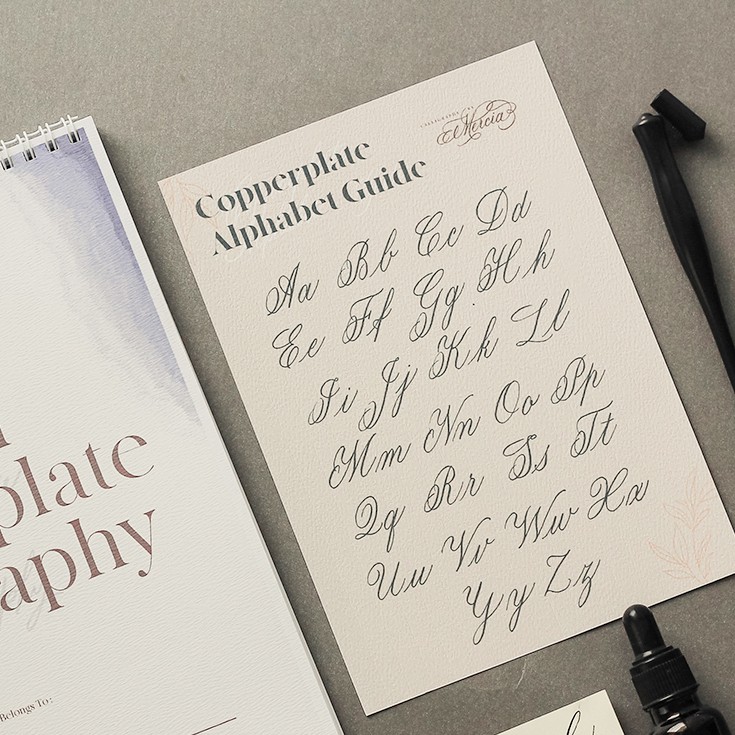 Copperplate
Alphabet Guide
Mercia
Aa Bb Cc Dd
Ee Ff Gg Hh
Ii Jj Kk Ll
Mm Nn Oo Pp
Qq Rr Ss Tt
Uu Vv Ww Xx
Yy Zz
plate
aphy
Belongs To: